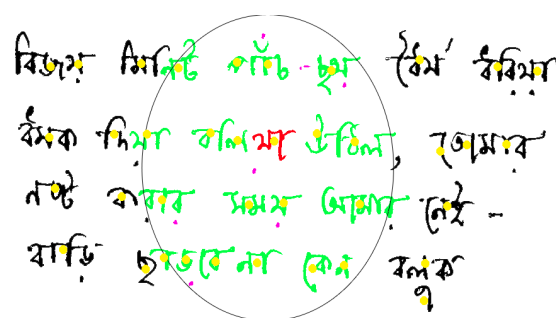 বিজয় মিনিট পাঁচ-ছয় ধৈর্য ধরিয়া
ধমক দিয়া বলিয়া উঠিল, তোমার
নষ্ট করবার সময় আমার নেই -
বাড়ি ছাড়বে না কেন বলুক